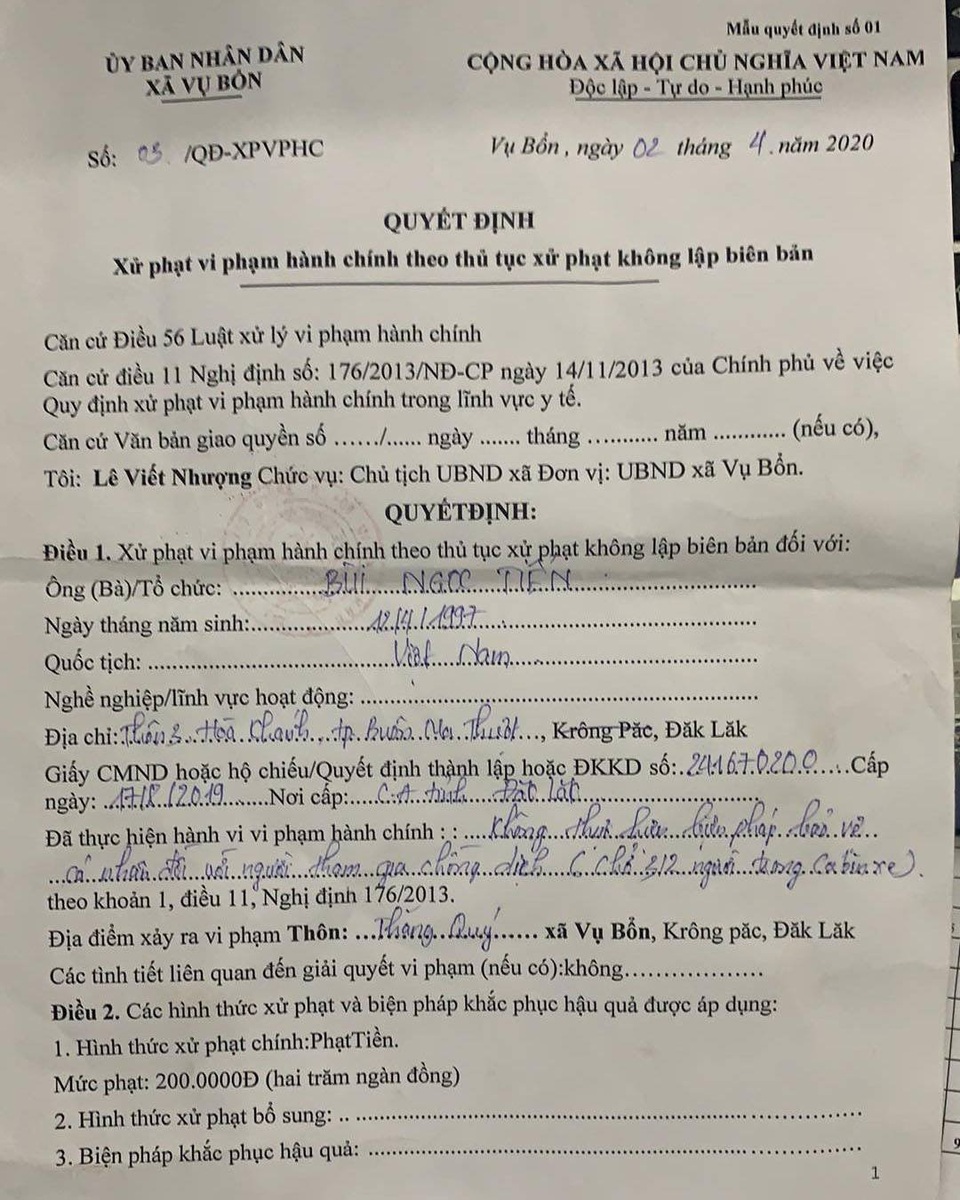 Mẫu quyết định số 01
ỦY BAN NHÂN DÂN
XÃ VỤ BỔN
CỘNG HÒA XÃ HỘI CHỦ NGHĨA VIỆT NAM
Độc lập - Tự do - Hạnh phúc
Số: 03 /QĐ-XPVPHC
Vụ Bổn, ngày 02 tháng 4. năm 2020
QUYẾT ĐỊNH
Xử phạt vi phạm hành chính theo thủ tục xử phạt không lập biên bản
Căn cứ Điều 56 Luật xử lý vi phạm hành chính
Căn cứ điều 11 Nghị định số: 176/2013/NĐ-CP ngày 14/11/2013 của Chính phủ về việc
Quy định xử phạt vi phạm hành chính trong lĩnh vực y tế.
Căn cứ Văn bản giao quyền số ....../...... ngày ....... tháng ........... năm ............ (nếu có),
Tôi: Lê Viết Nhượng Chức vụ: Chủ tịch UBND xã Đơn vị: UBND xã Vụ Bổn.
QUYẾTĐỊNH:
Điều 1. Xử phạt vi phạm hành chính theo thủ tục xử phạt không lập biên bản đối với:
Ông (Bà)/Tổ chức: BÙI NGỌC TIẾN
Ngày tháng năm sinh: 12/4/1997
Quốc tịch: Việt Nam
Nghề nghiệp/lĩnh vực hoạt động:
Địa chỉ: Thôn Hoà Khánh, tp Buôn Ma Thuột, Krông Păc, Đăk Lăk
Giấy CMND hoặc hộ chiếu/Quyết định thành lập hoặc ĐKKD số: 241670200 Cấp
ngày: 17/8/2019 Nơi cấp: C.A tỉnh Đăk Lăk
Đã thực hiện hành vi vi phạm hành chính : : Không thực hiện biện pháp bảo vệ
cá nhân đối với người tham gia chống dịch (Chở 3/2 người trong Cabin xe).
theo khoản 1, điều 11, Nghị định 176/2013.
Địa điểm xảy ra vi phạm Thôn: Thăng Quý xã Vụ Bổn, Krông păc, Đăk Lăk
Các tình tiết liên quan đến giải quyết vi phạm (nếu có):không
Điều 2. Các hình thức xử phạt và biện pháp khắc phục hậu quả được áp dụng:
1. Hình thức xử phạt chính:PhạtTiền.
Mức phạt: 200.0000Đ (hai trăm ngàn đồng)
2. Hình thức xử phạt bổ sung:
3. Biện pháp khắc phục hậu quả:
1